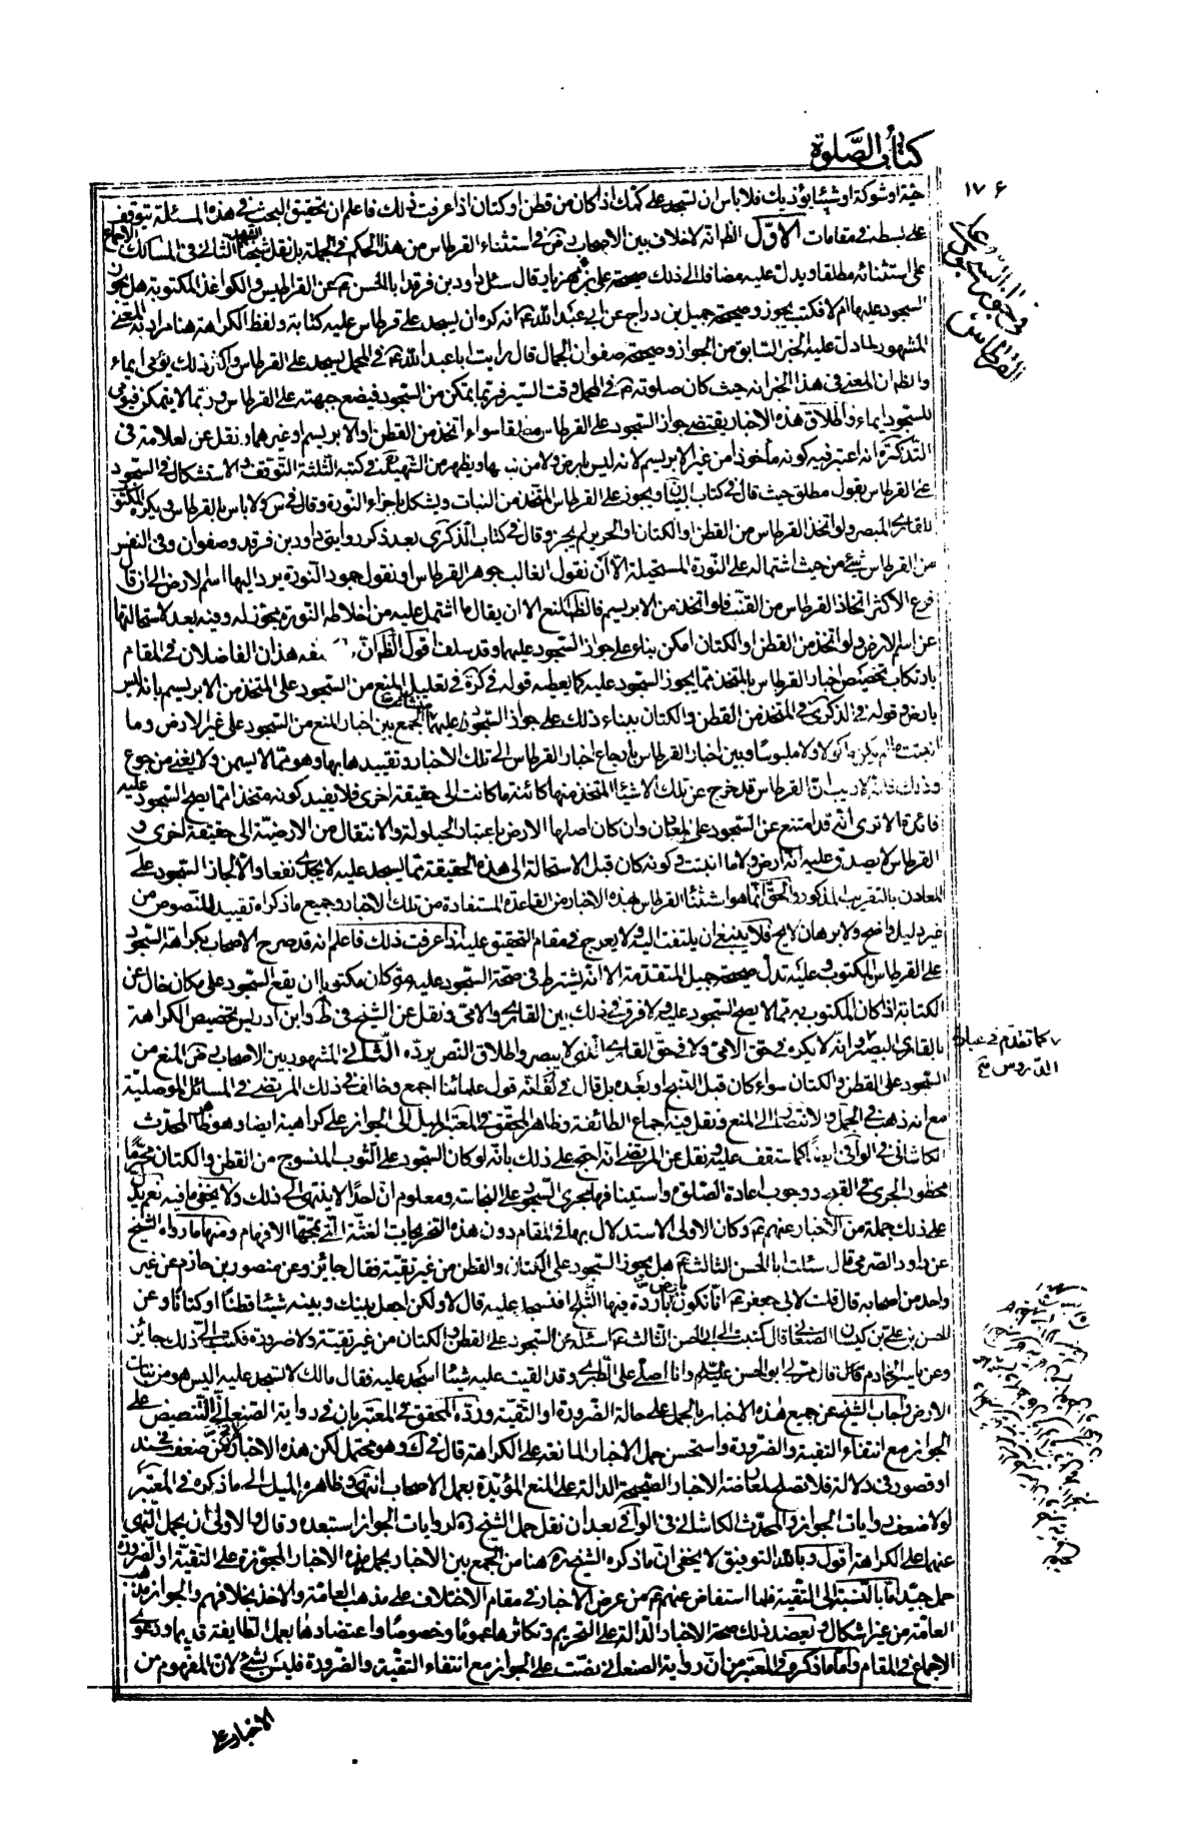 كتاب الصلوة
١٧۶
في جواز السجود على القرطاس
حية او شوكة او شيئا يؤذيك فلا باس ان تسجد على كمك اذا كان من قطن او كتان اذا عرفت ذلك فاعلم ان تحقيق البحث في هذه المسئلة يتوقف
على بسطه في مقامات الاول الظ انه لا خلاف بين الاصحاب رض في استثناء القرطاس من هذا الحكم في الجملة بل نقل شيخنا الشهيد الثاني في المسالك الاجماع
على استثنائه مطلقا ويدل عليه مضافا الى ذلك صحيحة علي بن مهزيار قال سئل داود بن فرقد ابا الحسن ع عن القراطيس والكواغذ المكتوبة هل يجوز
السجود عليها ام لا فكتب يجوز وصحيحة جميل بن دراج عن ابي عبد الله ع انه كره ان يسجد على قرطاس عليه كتابة ولفظ الكراهة هنا مراد به المعنى
المشهور لما دل عليه الخبر السابق من الجواز وصحيحة صفوان الجمال قال رايت ابا عبد الله ع في المحمل يسجد على القرطاس واكثر ذلك يومي ايماء
والظ ان المعنى في هذا الخبر انه حيث كان صلوته ع في المحمل وقت السير فربما يتمكن من السجود فيضع جبهته على القرطاس وربما لا يتمكن فيومي
للسجود ايماء واطلاق هذه الاخبار يقتضي جواز السجود على القرطاس مطلقا سواء اتخذ من القطن او الابريسم او غيرهما ونقل عن العلامة في
التذكرة انه اعتبر فيه كونه مأخوذا من غير الابريسم لانه ليس بارض ولا من نباتها ويظهر من الشهيد في كتبه الثلثة التوقف والاستشكال في السجود
على القرطاس بقول مطلق حيث قال في كتاب البيان ويجوز على القرطاس المتخذ من النبات ويشكل باجزاء النورة وقال في س ولا باس بالقرطاس ويكره المكتوب
للقاري المبصر ولو اتخذ القرطاس من القطن او الكتان او الحرير لم يجز وقال في كتاب الذكرى بعد ذكر روايتي داود بن فرقد وصفوان وفي النفس
من القرطاس شيء من حيث اشتماله على النورة المستحيلة الا ان نقول الغالب جوهر القرطاس او نقول جمود النورة يرد اليها اسم الارض الى ان قال
فرع الاكثر اتخاذ القرطاس من القنب فلو اتخذ من الابريسم فالظ المنع الا ان يقال ما اشتمل عليه من اخلاط النورة مجوز له وفيه بعد لاستحالتها
عن اسم الارض ولو اتخذ من القطن او الكتان امكن بناؤه على جواز السجود عليهما وقد سلف اقول الظ ان هذان الفاضلان في المقام
بارتكاب تخصيص اخبار القرطاس بالمتخذ مما يجوز السجود عليه كما يعطيه قوله في كرة في تعليل المنع من السجود على المتخذ من الابريسم بانه ليس
بارض وقوله في الذكرى في المتخذ من القطن والكتان ببناء ذلك على جواز السجود عليهما الجمع بين اخبار المنع من السجود على غير الارض وما
انبتت ما لم يكن ماكولا ولا ملبوسا وبين اخبار القرطاس بارجاع اخبار القرطاس الى تلك الاخبار وتقييدها بها وهو مما لا يسمن ولا يغني من جوع
وذلك فانه لا ريب ان القرطاس قد خرج عن تلك الاشياء المتخذ منها كائنة ما كانت الى حقيقة اخرى فلا يفيد كونه متخذا مما يصح السجود عليه
فائدة الا ترى انه قد امتنع عن السجود على المعادن وان كان اصلها الارض باعتبار الحيلولة والانتقال من الارضية الى حقيقة اخرى و
القرطاس لا يصدق عليه انه ارض ولا ما انبتت وكونه كان قبل الاستحالة الى هذه الحقيقة مما يسجد عليه لا يجدي نفعا والا لجاز السجود على
المعادن بالتقريب المذكور والحق انما هو استثناء القرطاس بهذه الاخبار من القاعدة المستفادة من تلك الاخبار وجميع ما ذكراه تقييد للنصوص من
غير دليل واضح ولا برهان لايح فلا ينبغي ان يلتفت اليه ولا يعرج في مقام التحقيق عليه اذا عرفت ذلك فاعلم انه قد صرح الاصحاب بكراهة السجود
على القرطاس المكتوب وعليه تدل صحيحة جميل المتقدمة الا انه يشترط في صحة السجود عليه متى كان مكتوبا ان يقع السجود على مكان خال عن
الكتابة اذا كان المكتوب به مما لا يصح السجود عليه ولا فرق في ذلك بين القاري والامي ونقل عن الشيخ في ط وابن ادريس تخصيص الكراهة
بالقاري البصير وانه لا يكره في حق الامي ولا في حق القاري الذي لا يبصر واطلاق النص يرده الثاني المشهور بين الاصحاب رض المنع من
كما تقدم في عبارة
الدروس
السجود على القطن والكتان سواء كان قبل النسج او بعده بل قال في لف انه قول علمائنا اجمع وخالف في ذلك المرتضى في المسائل الموصلية
مع انه ذهب في الجمل والانتصار الى المنع ونقل فيه اجماع الطائفة وظاهر المحقق في المعتبر الميل الى الجواز على كراهية ايضا وهو ظا المحدث
الكاشاني في الوافي ايضا كما ستقف عليه ونقل عن المرتضى انه احتج على ذلك بانه لو كان السجود على الثوب المنسوج من القطن والكتان محرما
محظورا لجرى في القبح ووجوب اعادة الصلوة واستينافها مجرى السجود على النجاسة ومعلوم ان احدا لا ينتهي الى ذلك ولا يخفى ما فيه نعم يدل
على ذلك جملة من الاخبار عنهم ع وكان الاولى الاستدلال بها في المقام دون هذه التخريجات الغثة التي تمجها الافهام ومنها ما رواه الشيخ
عن داود الصرمي قال سئلت ابا الحسن الثالث ع هل يجوز السجود على الكتان والقطن من غير تقية فقال جائز وعن منصور بن حازم عن غير
واحد من اصحابه قال قلت لابي جعفر ع انا نكون بارض باردة فيها الثلج افنسجد عليه قال لا ولكن اجعل بينك وبينه شيئا قطنا او كتانا وعن
الحسين بن علي بن كيسان الصنعاني قال كتبت الى ابي الحسن الثالث ع اسئله عن السجود على القطن والكتان من غير تقية ولا ضرورة فكتب الي ذلك جائز
وعن ياسر الخادم قال قال مر بي ابو الحسن عليه السلام وانا اصلي على الطبري وقد القيت عليه شيئا اسجد عليه فقال مالك لا تسجد عليه اليس هو من نبات
الارض واجاب الشيخ عن جميع هذه الاخبار بالحمل على حالة الضرورة او التقية ورده المحقق في المعتبر بان في رواية الصنعاني التنصيص على
الجواز مع انتفاء التقية والضرورة واستحسن حمل الاخبار المانعة على الكراهة قال في ك وهو محتمل لكن هذه الاخبار لا تخ من ضعف في سند
او قصور في دلالة فلا تصلح لمعارضة الاخبار الصحيحة الدالة على المنع المؤيدة بعمل الاصحاب انتهى وظاهره الميل الى ما ذكره في المعتبر
لولا ضعف روايات الجواز والمحدث الكاشاني في الوافي بعد ان نقل حمل الشيخ ره لروايات الجواز استبعده وقال والاولى ان يحمل النهي
عنهما على الكراهة اقول وبالله التوفيق لا يخفى ان ما ذكره الشيخ ره هنا من الجمع بين الاخبار بحمل هذه الاخبار المجوزة على التقية او الضرورة
حمل جيد اما بالنسبة الى التقية فلما استفاض عنهم ع من عرض الاخبار في مقام الاختلاف على مذهب العامة والاخذ بخلافهم والجواز مذهب
العامة من غير اشكال ويعضد ذلك صحة الاخبار الدالة على التحريم وتكاثرها عموما وخصوصا واعتضادها بعمل الطائفة قديما ودعوى
الاجماع في المقام واما ما ذكره في المعتبر من ان رواية الصنعاني نصت على الجواز مع انتفاء التقية والضرورة فليس بشيء لان المفهوم من
الاخبار على